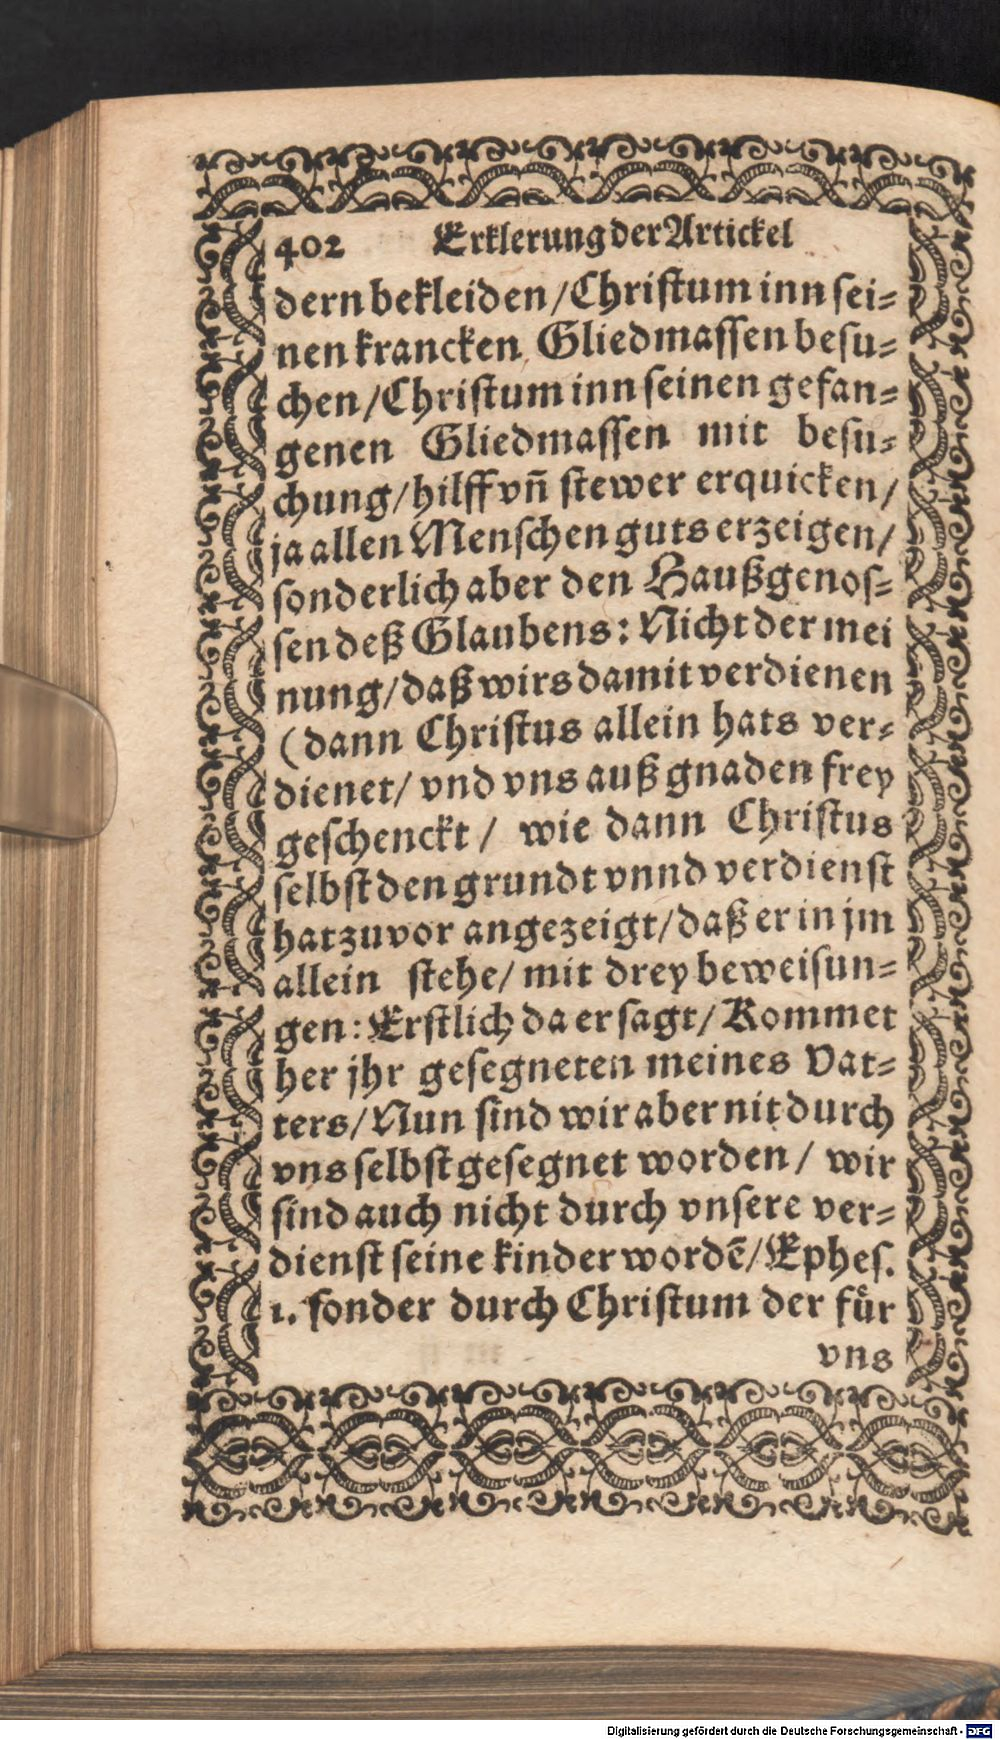 402 Erklerung der Artickel
dern bekleiden/Christum inn sei=
nen krancken Gliedmassen besu=
chen/Christum inn seinen gefan=
genen Gliedmassen mit besu=
chung/hilff vñ stewer erquicken/
ja allen Menschen guts erzeigen/
sonderlich aber den Haußgenos=
sen deß Glaubens: Nicht der mei
nung/daß wirs damit verdienen
(dann Christus allein hats ver=
dienet/ vnd vns auß gnaden frey
geschenckt/ wie dann Christus
selbst den grundt vnnd verdienst
hat zuvor angezeigt/daß er in jm
allein stehe/ mit drey beweisun=
gen: Erstlich da er sagt/ Kommet
her jhr gesegneten meines Vat=
ters/Nun sind wir aber nit durch
vns selbst gesegnet worden/ wir
sind auch nicht durch vnsere ver=
dienst seine kinder wordē/Ephes.
1. sonder durch Christum der fuͤr
vns
Digitalisierung gefördert durch die Deutsche Forschungsgemeinschaft - DFG